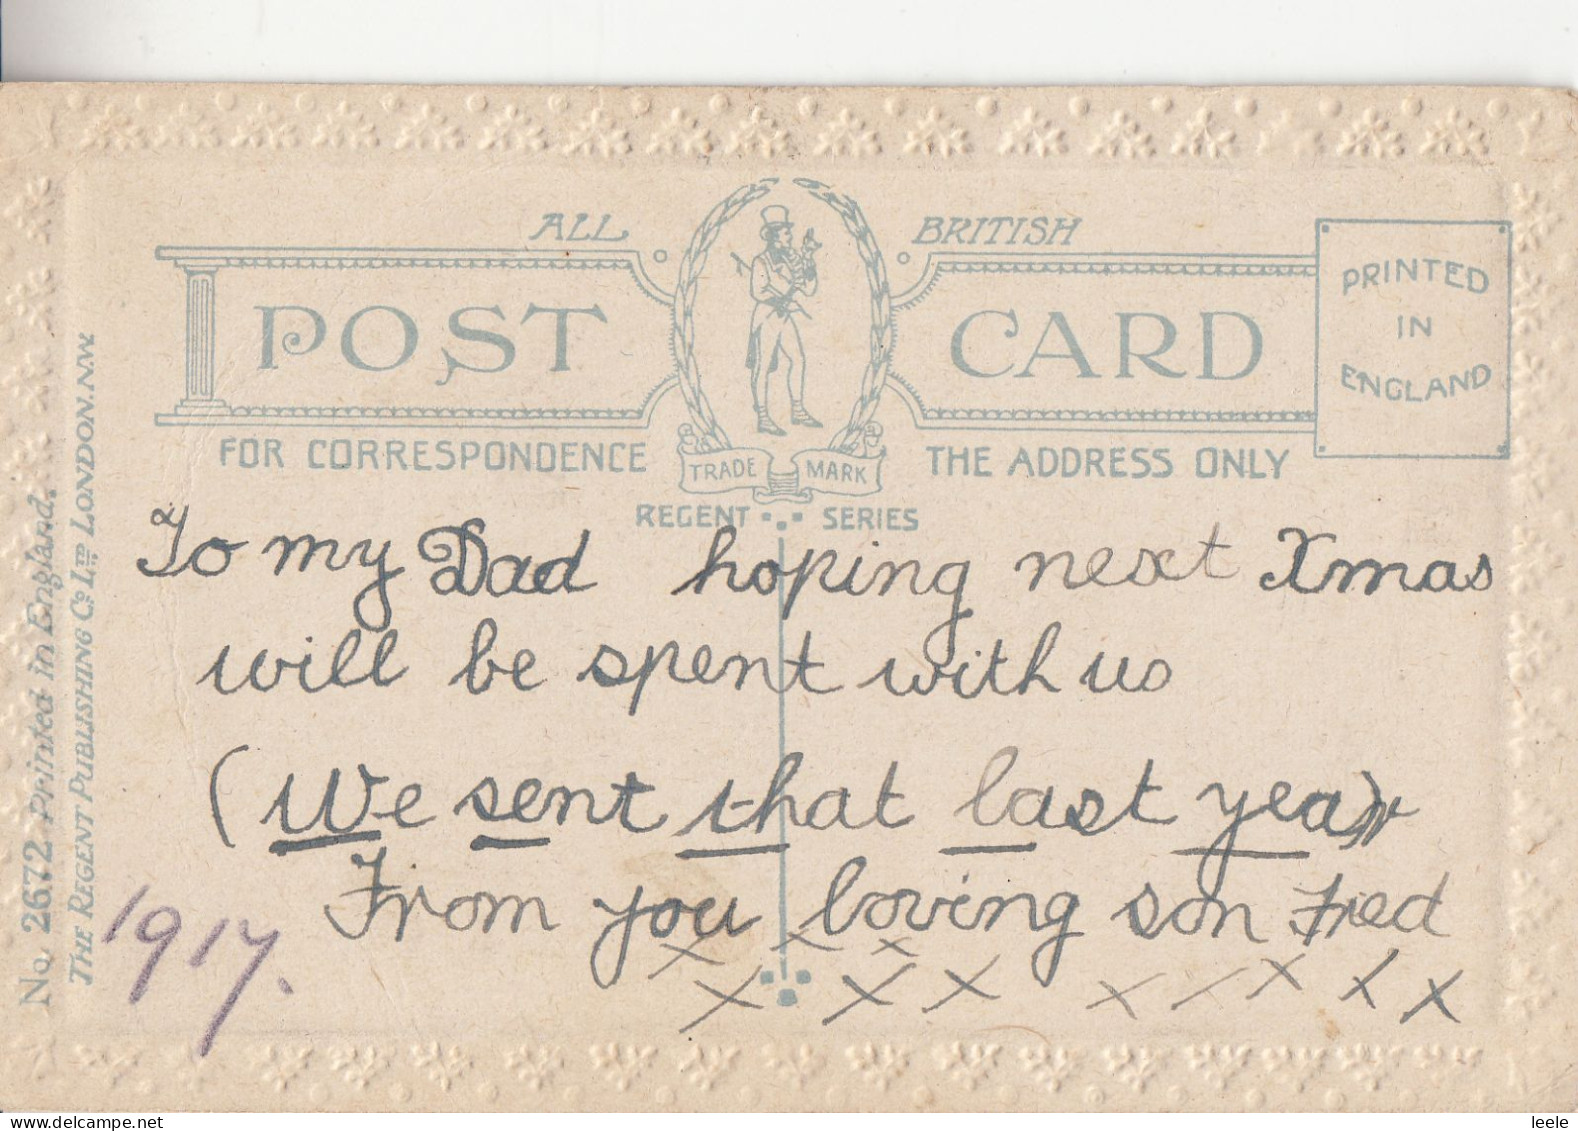 ALL BRITISH
POST CARD
PRINTED
IN
ENGLAND
FOR CORRESPONDENCE THE ADDRESS ONLY
TRADE MARK
REGENT SERIES
To my Dad hoping next Xmas
will be spent with us
(We sent that last year)
From you loving son Fred
x x x
x x x x x x x x
1917.
No. 2672 Printed in England.
THE REGENT PUBLISHING Co LTD LONDON.N.W.
delcampe.net
leele